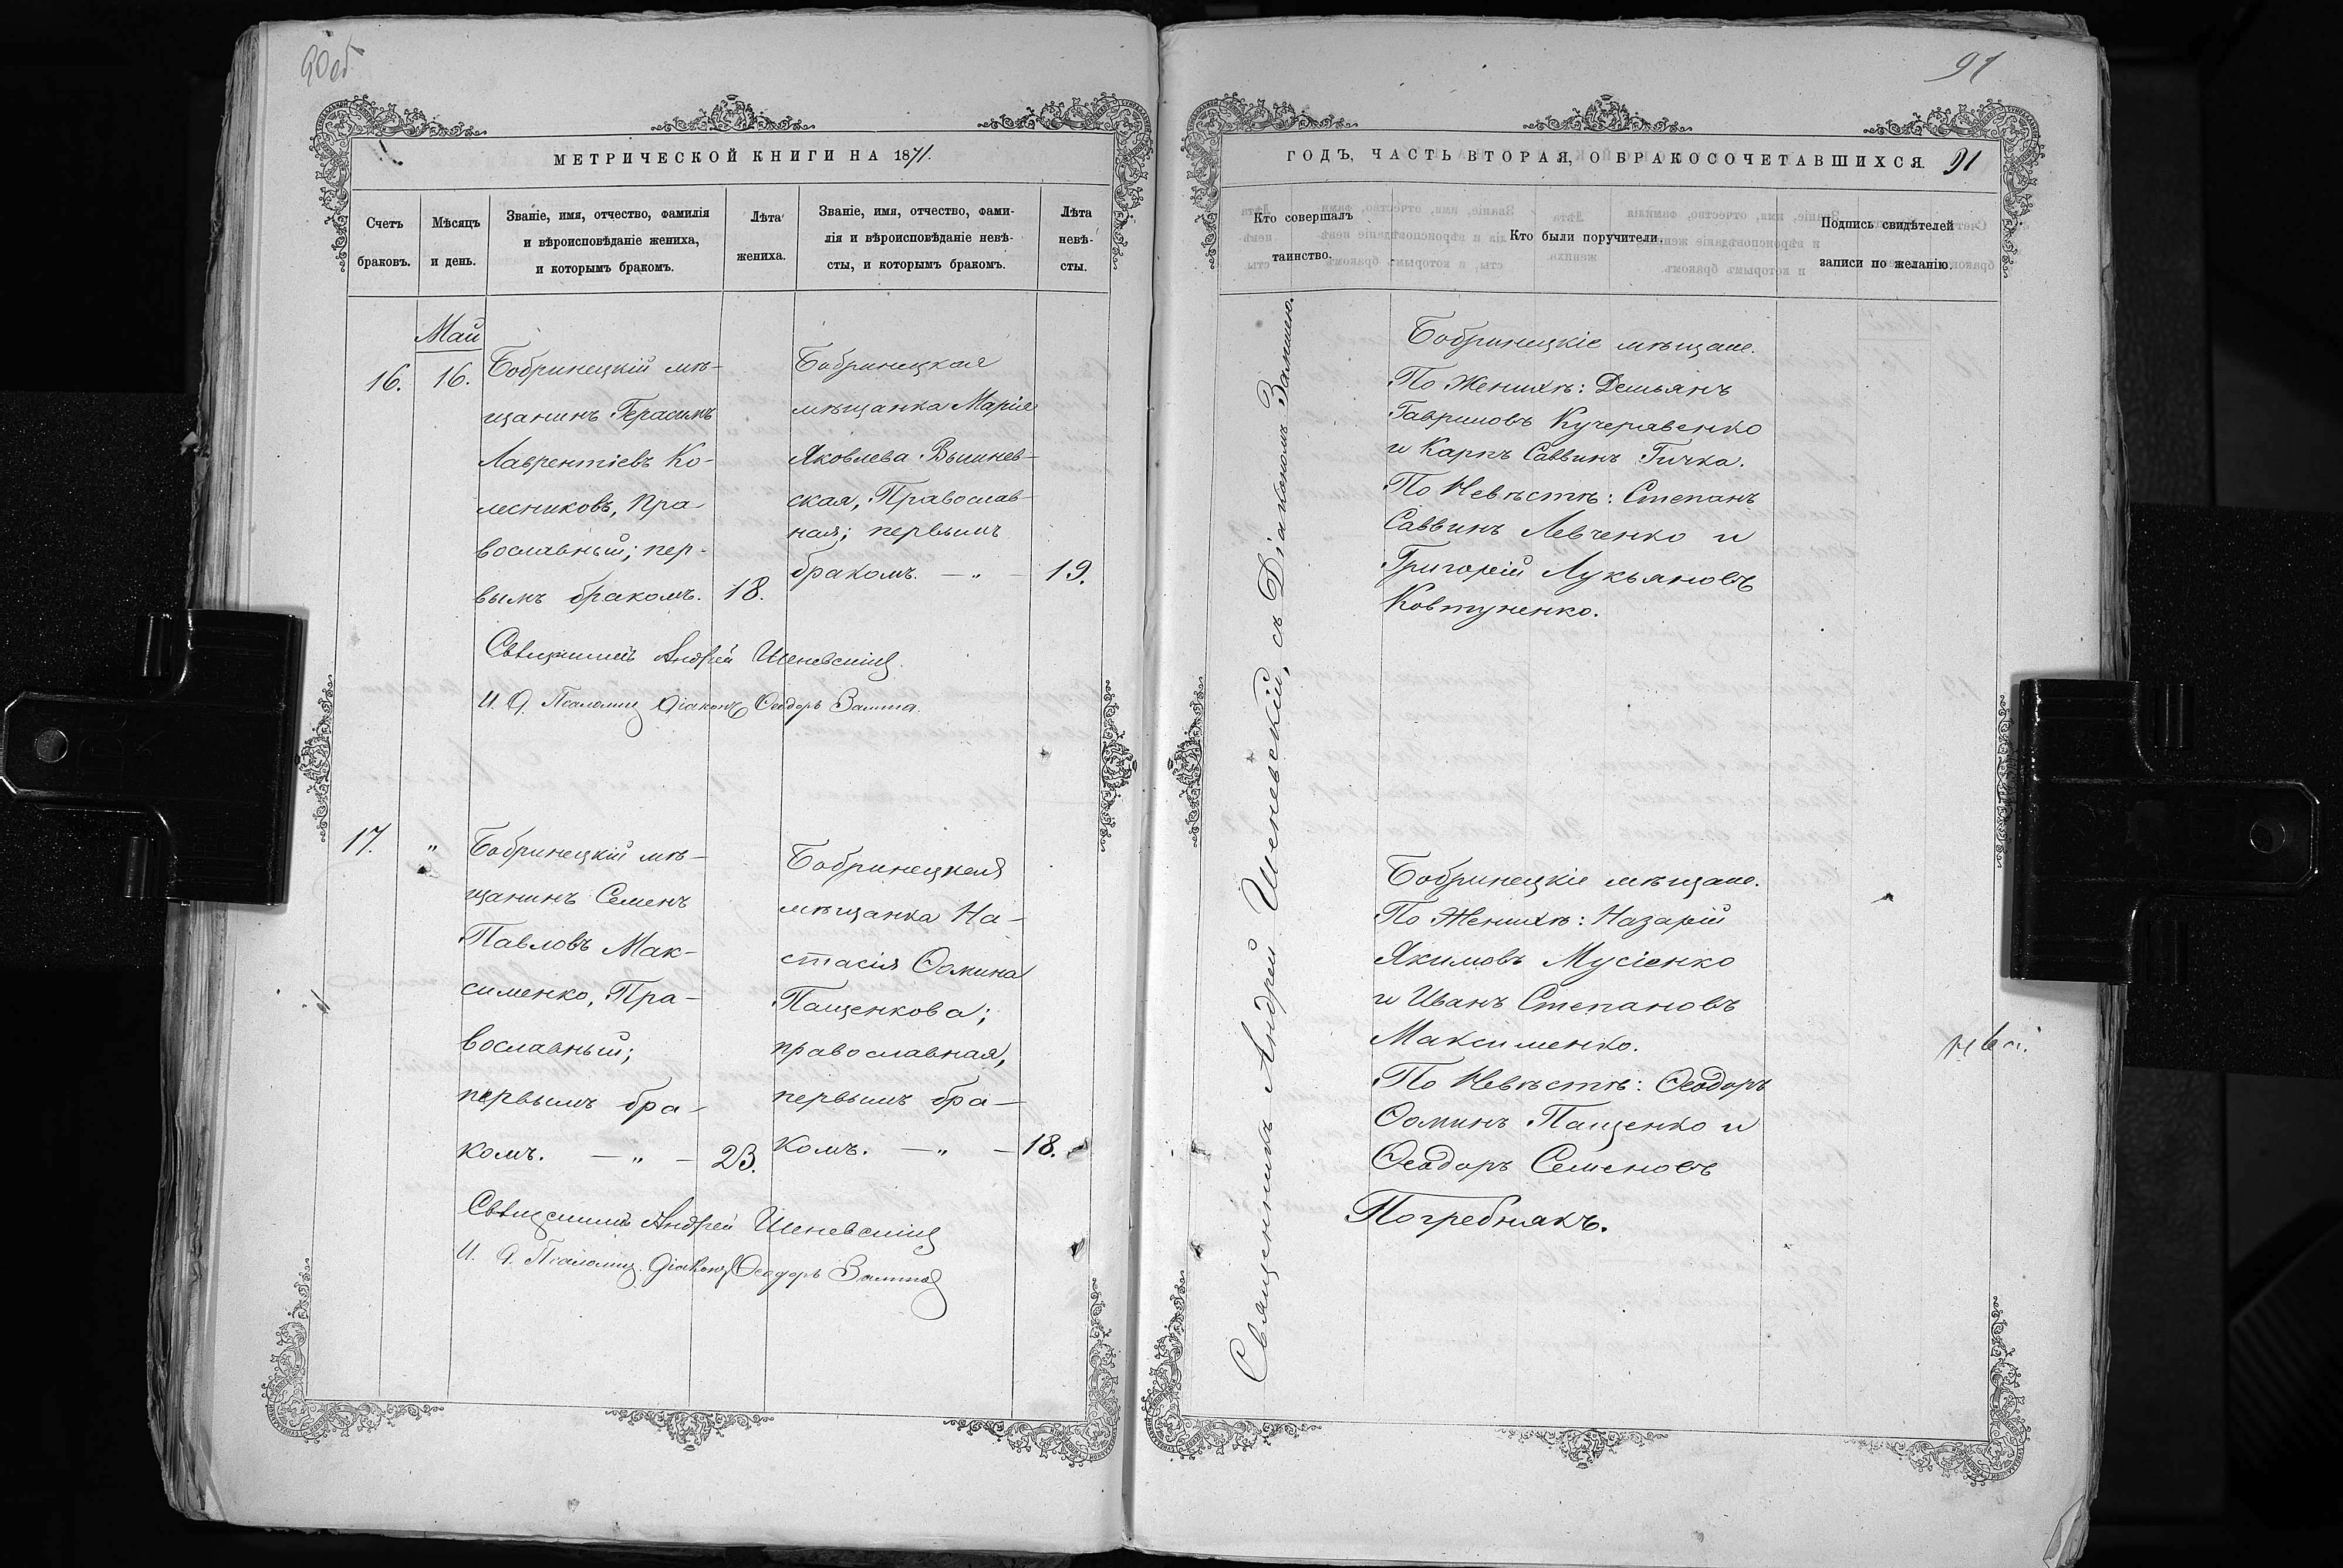 90 об
МЕТРИЧЕСКОЙ КНИГИ НА 1871.
Счетъ браковъ.
Мѣсяцъ и день.
Званіе, имя, отчество, фамилія
и вѣроисповѣданіе жениха,
и которымъ бракомъ.
Лѣта
жениха.
Званіе, имя, отчество, фами-
лія и вѣроисповѣданіе невѣ-
сты, и которымъ бракомъ.
Лѣта
невѣ-
сты.
Май
16.
16.
Бобринецкій мѣ-
щанинъ Герасимъ
Лаврентіевъ Ко-
лесниковъ, Пра-
вославный; пер-
вымъ бракомъ.
18.
Бобринецкая
мѣщанка Марія
Яковлева Вышнев-
ская, Православ-
ная; первымъ
бракомъ. — „ —
19.
Священникъ Андрей Шеневскій
И. д. Псаломщ. Діаконъ Ѳеодоръ
17.
„
Бобринецкій мѣ-
щанинъ Семенъ
Павловъ Мак-
сименко, Пра-
вославный;
первымъ бра-
комъ. — „ —
23.
Бобринецкая
мѣщанка На-
стасія Ѳомина
Пащенкова;
православная,
первымъ бра-
комъ. — „ —
18.
Священникъ Андрей Шеневскій
И. д. Псаломщ. Діаконъ Ѳеодоръ
91
ГОДЪ, ЧАСТЬ ВТОРАЯ, О БРАКОСОЧЕТАВШИХСЯ. 91
Кто совершалъ
таинство.
Кто были поручители.
Подпись свидѣтелей
записи по желанію.
Священникъ Андрей Шеневскій, съ Діакономъ
Бобринецкіе мѣщане.
По Женихѣ: Демьянъ
Гавриловъ Кучеравенко
и Карпъ Саввинъ Гичка.
По Невѣстѣ: Степанъ
Саввинъ Левченко и
Григорій Лукьяновъ
Ковтуненко.
Бобринецкіе мѣщане.
По Женихѣ: Назарій
Якимовъ Мусіенко
и Иванъ Степановъ
Максименко.
По Невѣстѣ: Ѳеодоръ
Ѳоминъ Пащенко и
Ѳеодоръ Семеновъ
Погребнякъ.